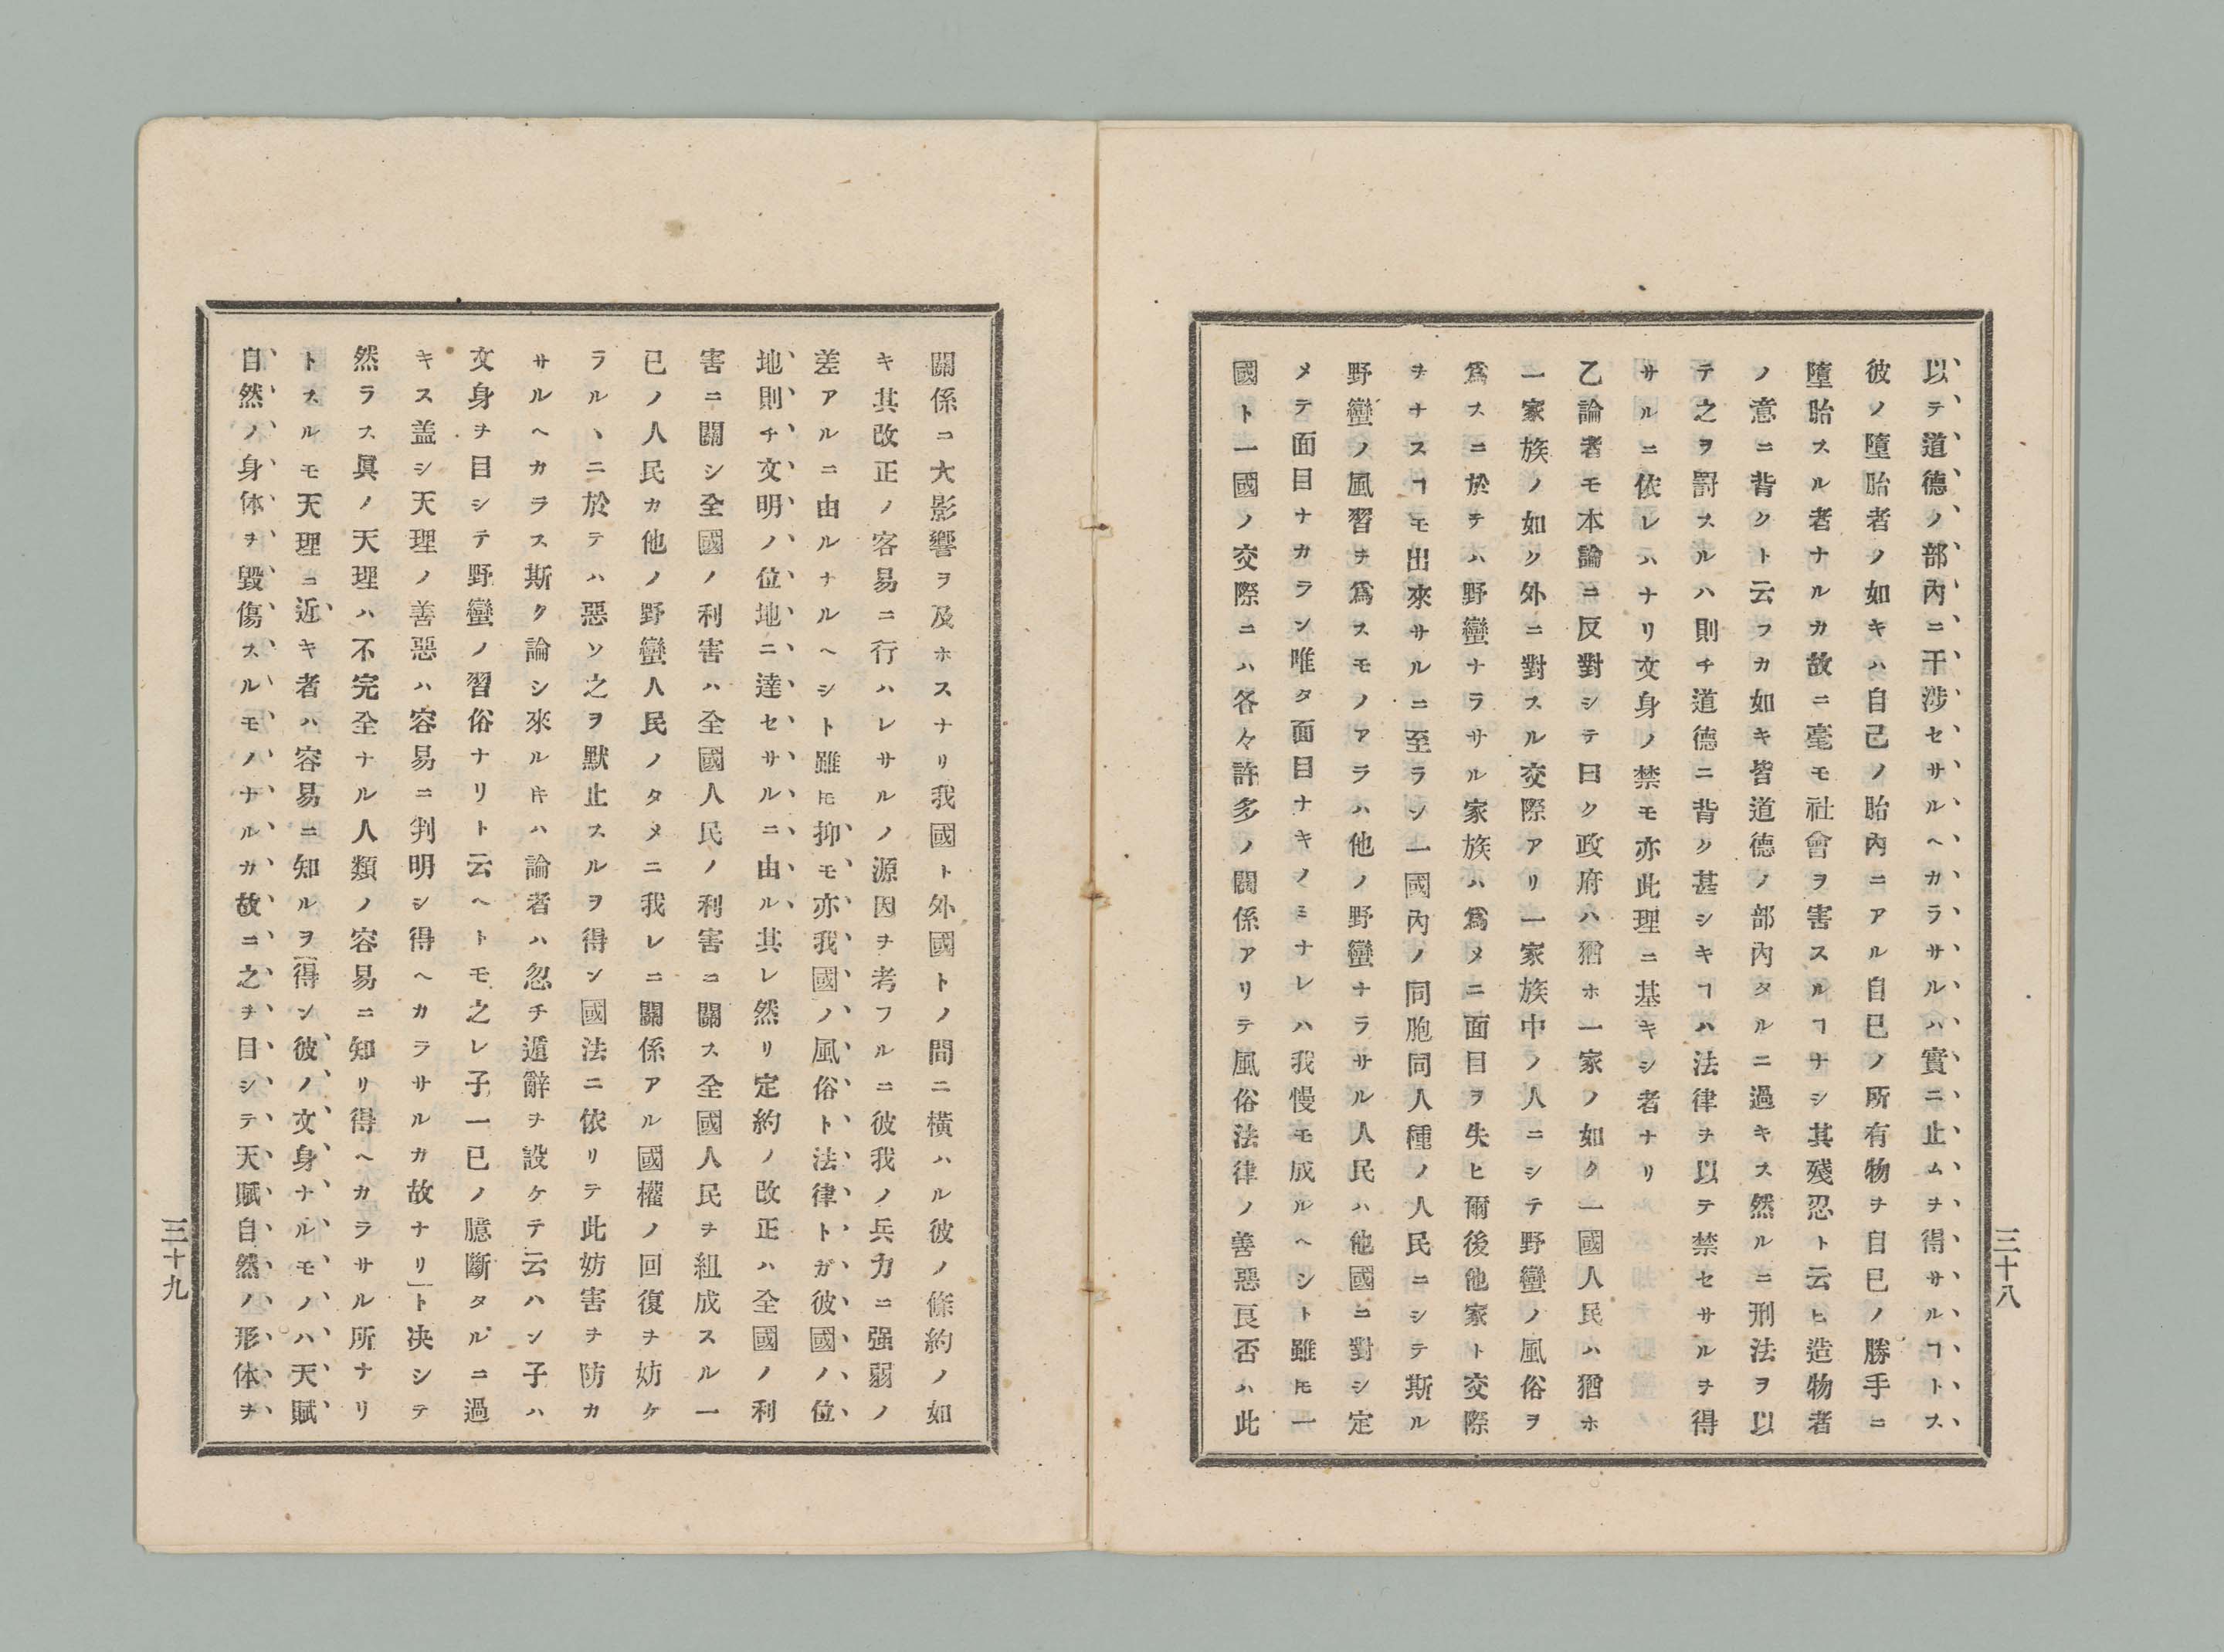 以テ道德ノ部內ニ干涉セサルヘカラサルハ實ニ止ムヲ得サルヿトス
彼ノ墮胎者ノ如キハ自己ノ胎內ニアル自已ノ所有物ヲ自已ノ勝手ニ
墮胎スル者ナルカ故ニ毫モ社會ヲ害スルヿナシ其殘忍ト云ヒ造物者
ノ意ニ背クト云フカ如キ皆道德ノ部內タルニ過キス然ルニ刑法ヲ以
テ之ヲ罰スルハ則チ道德ニ背ク甚シキヿハ法律ヲ以テ禁セサルヲ得
サルニ依レハナリ文身ノ禁モ亦此理ニ基キシ者ナリ
乙論者モ本論ニ反對シテ曰ク政府ハ猶ホ一家ノ如ク一國人民ハ猶ホ
一家族ノ如ク外ニ對スル交際アリ一家族中ノ人ニシテ野蠻ノ風俗ヲ
爲スニ於テハ野蠻ナラサル家族ハ爲メニ面目ヲ失ヒ爾後他家ト交際
ヲナスヿモ出來サルニ至ラン一國內ノ同胞同人種ノ人民ニシテ斯ル
野蠻ノ風習ヲ爲スモノアラハ他ノ野蠻ナラサル人民ハ他國ニ對シ定
メテ面目ナカラン唯タ面目ナキノミナレハ我慢モ成ルヘシト雖𪜈一
國ト一國ノ交際ニハ各々許多ノ關係アリテ風俗法律ノ善惡良否ハ此
三十八
關係ニ大影響ヲ及ホスナリ我國ト外國トノ間ニ橫ハル彼ノ條約ノ如
キ其改正ノ容易ニ行ハレサルノ源因ヲ考フルニ彼我ノ兵力ニ强弱ノ
差アルニ由ルナルヘシト雖𪜈抑モ亦我國ノ風俗ト法律トガ彼國ノ位
地則チ文明ノ位地ニ達セサルニ由ル其レ然リ定約ノ改正ハ全國ノ利
害ニ關シ全國ノ利害ハ全國人民ノ利害ニ關ス全國人民ヲ組成スル一
已ノ人民カ他ノ野蠻人民ノタメニ我レニ關係アル國權ノ回復ヲ妨ケ
ラルヽニ於テハ惡ソ之ヲ默止スルヲ得ン國法ニ依リテ此妨害ヲ防カ
サルヘカラス斯ク論シ來ル𪜈ハ論者ハ忽チ遁辭ヲ設ケテ云ハン子ハ
文身ヲ目シテ野蠻ノ習俗ナリト云ヘトモ之レ子一已ノ臆斷タルニ過
キス盖シ天理ノ善惡ハ容易ニ判明シ得ヘカラサルカ故ナリ」ト决シテ
然ラス眞ノ天理ハ不完全ナル人類ノ容易ニ知リ得ヘカラサル所ナリ
トスルモ天理ニ近キ者ハ容易ニ知ルヲ得ン彼ノ文身ナルモノハ天賦
自然ノ身体ヲ毀傷スルモノナルカ故ニ之ヲ目シテ天賦自然ノ形体ヲ
三十九